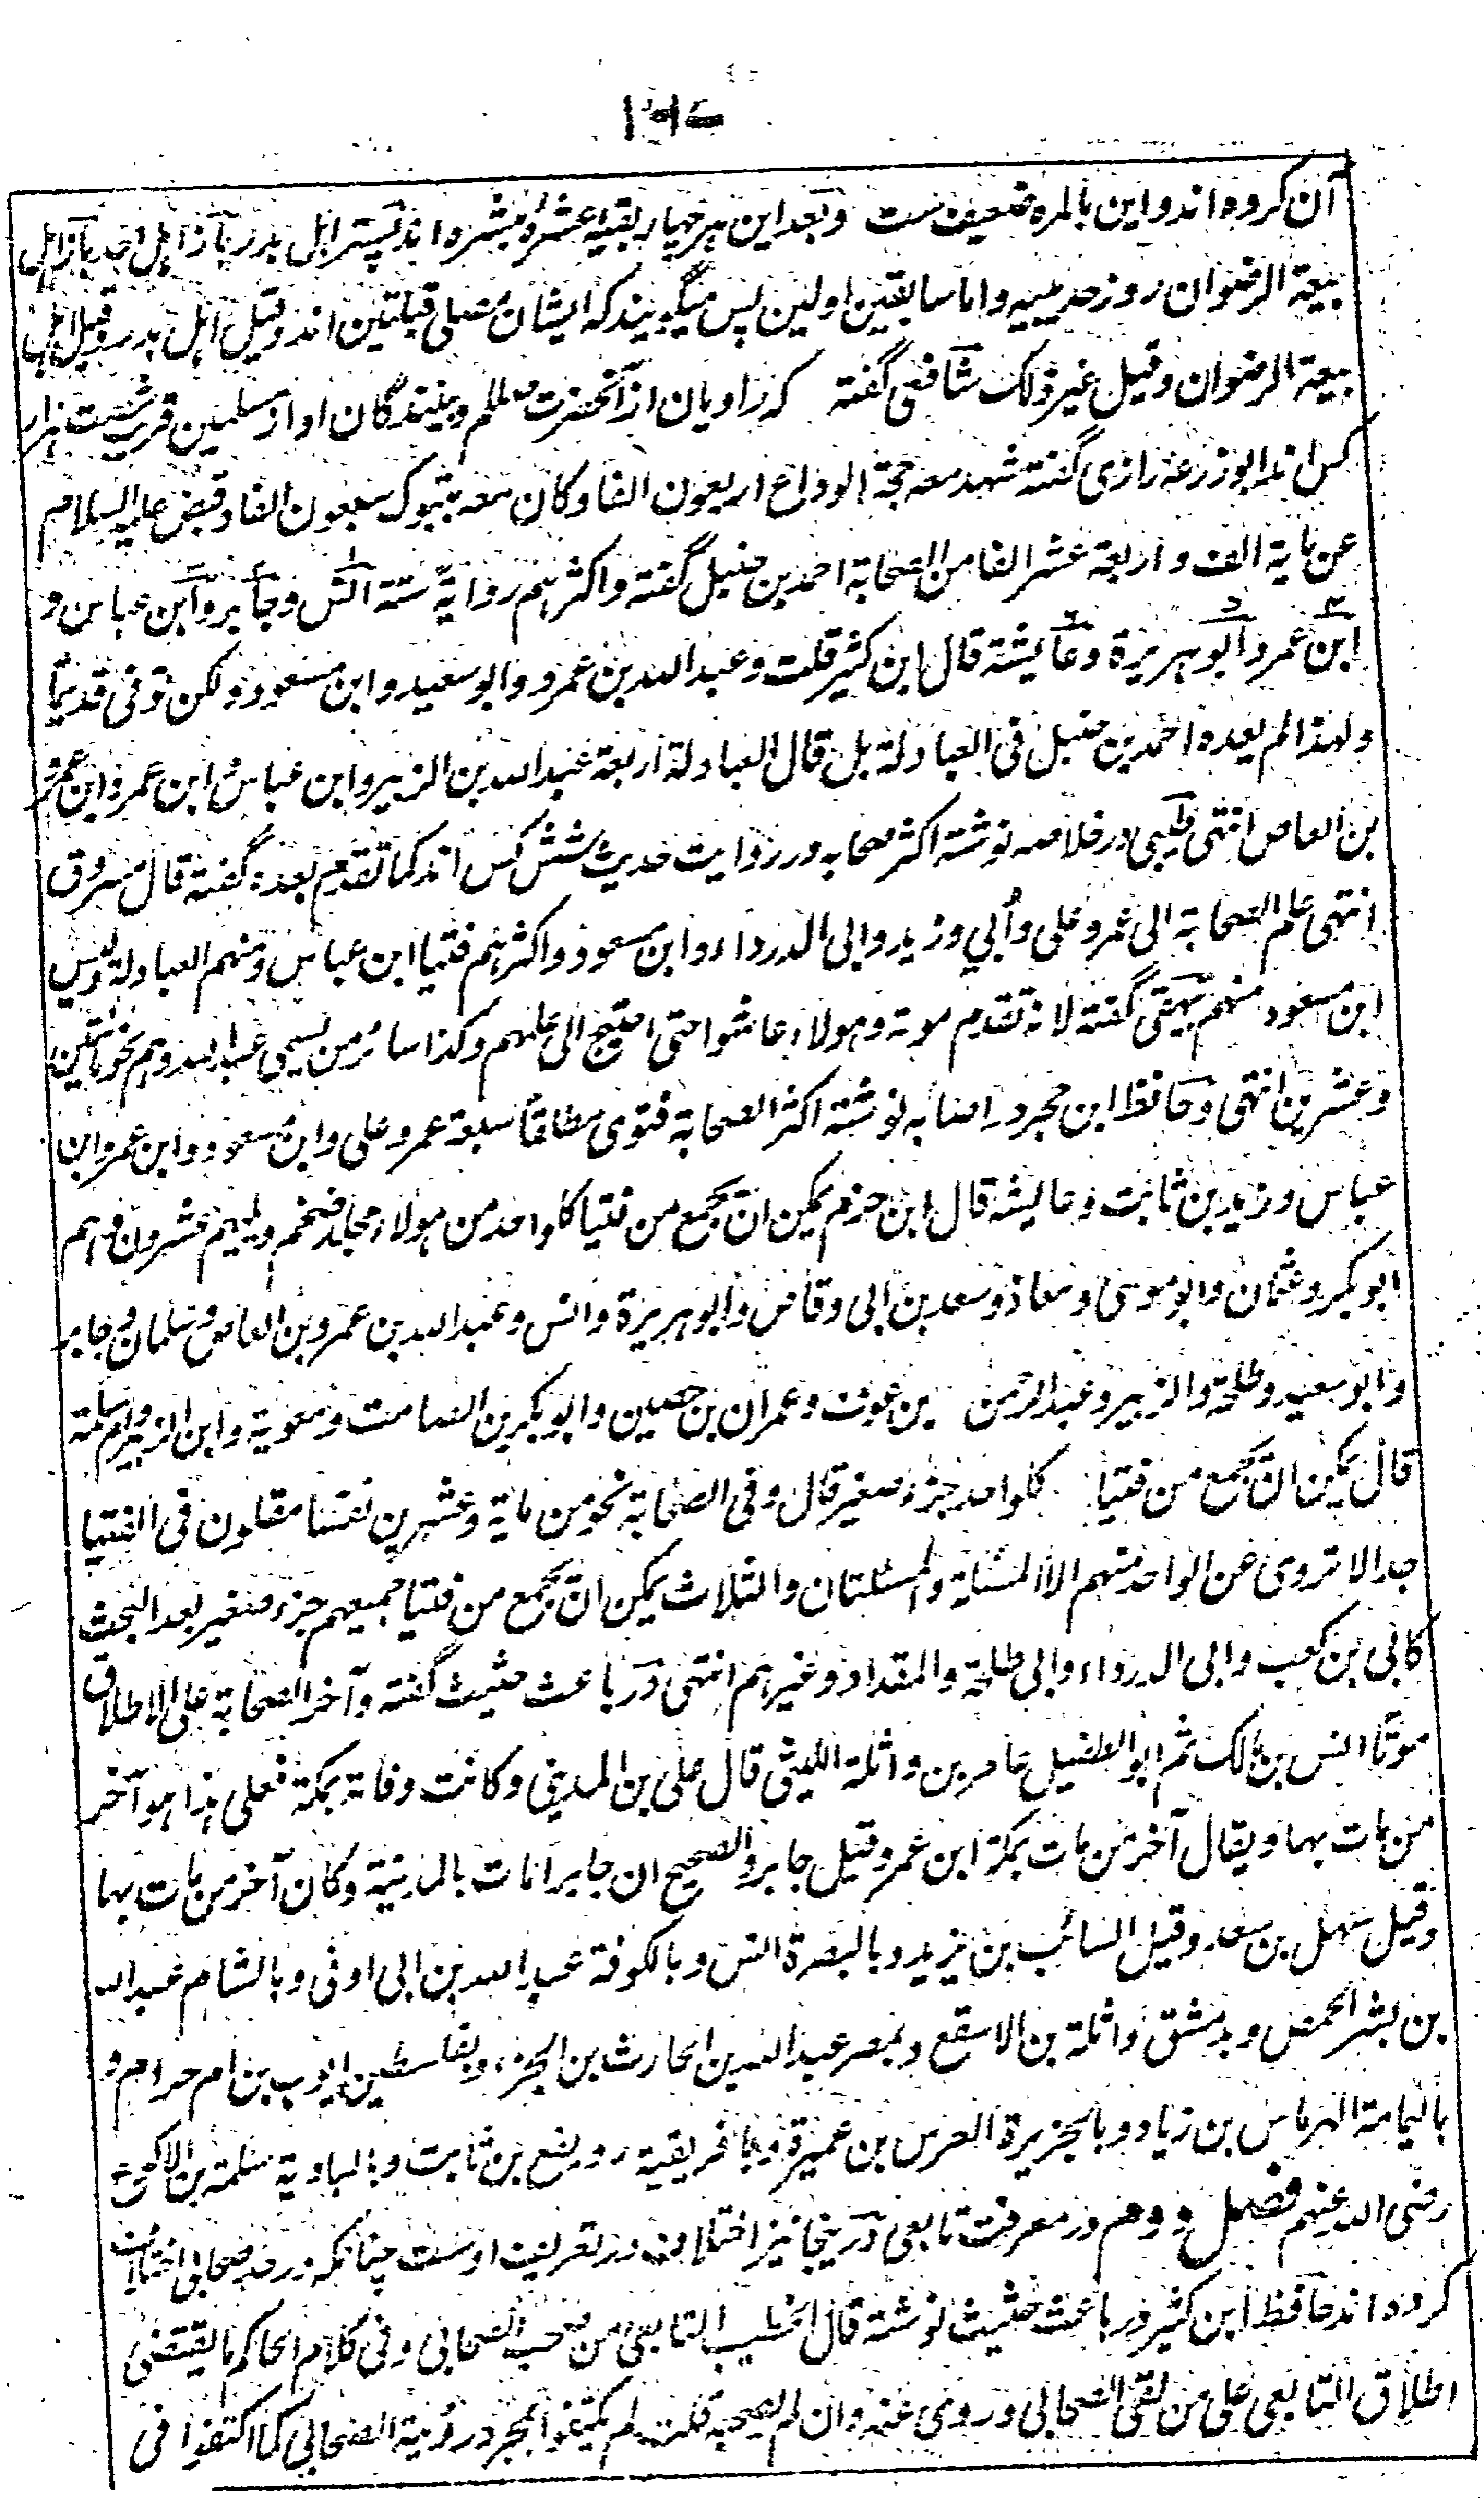 آن کرده اند و این بالمره ضعیف ست و بعد این هر چهار بقیهٔ عشرهٔ مبشره اند پستر اهل بدر باز اهل احد باز اهل
بیعة الرضوان روز حدیبیه و اما سابقین اولین پس میگویند که ایشان مصلی قبلتین اند و قیل اهل بدر و قیل اهل
بیعة الرضوان و قیل غیر ذلک شافعی گفته که راویان از آنحضرت صلعم و بینندگان او از مسلمین قریب شصت هزار
کس اند ابوزرعه رازی گفته شهد معه حجة الوداع اربعون الفا و کان معه بتبوک سبعون الفا و قبض علیه السلام
عن مایة الف و اربعة عشر الفا من الصحابة احمد بن حنبل گفته و اکثرهم روایةً ستة انس و جابر و ابن عباس و
ابن عمر و ابو هریرة و عایشة قال ابن کثیر قلت و عبد الله بن عمرو و ابو سعید و ابن مسعود و لکن توفی قدیماً
و لهذا لم یعده احمد بن حنبل فی العبادلة بل قال العبادلة اربعة عبد الله بن الزبیر و ابن عباس و ابن عمر و ابن عمرو
بن العاص انتهی طیبی در خلاصه نوشته اکثر صحابه در روایت حدیث شش کس اند کما تقدم بعده گفته قال مسروق
انتهی علم الصحابة الی عمر و علی و أُبی و زید و ابی الدرداء و ابن مسعود و اکثرهم فتیا ابن عباس و منهم العبادلة و لیس
ابن مسعود منهم بیهقی گفته لانه تقدم موته و هولاء عاشوا حتی احتیج الی علمهم و کذا سائر من یسمی عبد الله و هم نحو مأتین
و عشرین انتهی و حافظ ابن حجر در اصابه نوشته اکثر الصحابة فتوی مطلقاً سبعة عمر و علی و ابن مسعود و ابن عمر و ابن
عباس و زید بن ثابت و عایشه قال ابن حزم یمکن ان یجمع من فتیا کلواحد من هولاء مجلد ضخم و یلیهم عشرون و هم
ابوبکر و عثمان و ابو موسی و معاذ و سعد بن ابی وقاص و ابو هریرة و انس و عبد الله بن عمرو بن العاص و سلمان و جابر
و ابو سعید و طلحة و الزبیر و عبد الرحمن بن عوف و عمران بن حصین و ابوبکر بن الصامت و معویة و ابن الزبیر و ام سلمة
قال یمکن ان یجمع من فتیا کلواحد جزء صغیر قال و فی الصحابة نحو من مایة و عشرین نفسا مقلون فی الفتیا
جدا لا تروی عن الواحد منهم الا المسئلة و المسئلتان و الثلاث یمکن ان یجمع من فتیا جمیعهم جزء صغیر بعد البحث
کابی بن کعب و ابی الدرداء و ابی طلحة و المقداد و غیرهم انتهی در باعث حثیث گفته و آخر الصحابة علی الاطلاق
موتاً انس بن مالک ثم ابو الطفیل عامر بن واثلة اللیثی قال علی بن المدینی و کانت وفاته بمکة فعلی هذا هو آخر
من مات بها و یقال آخر من مات بمکة ابن عمر و قیل جابر و الصحیح ان جابرا مات بالمدینة و کان آخر من مات بها
و قیل سهل بن سعد و قیل السائب بن یزید و بالبصرة انس و بالکوفة عبد الله بن ابی اوفی و بالشام عبد الله
بن بشر بحمص و بدمشق واثلة بن الاسقع و بمصر عبد الله بن الحارث بن الجزء و بفلسطین ابو ابی بن ام حرام و
بالیمامة الهرماس بن زیاد و بالجزیرة العرس بن عمیرة و بافریقیه رویفع بن ثابت و بالبادیة سلمة بن الاکوع
رضی الله عنهم فصل دوم در معرفت تابعی درینجا نیز اختلاف در تعریف اوست چنانکه در حد صحابی اختلاف
کرده اند حافظ ابن کثیر در باعث حثیث نوشته قال الخطیب التابعی من صحب الصحابی و فی کلام الحاکم ما یقتضی
اطلاق التابعی علی من لقی الصحابی و روی عنه و ان لم یصحبه قلت لم یکتفوا بمجرد رؤیة الصحابی کما اکتفوا فی